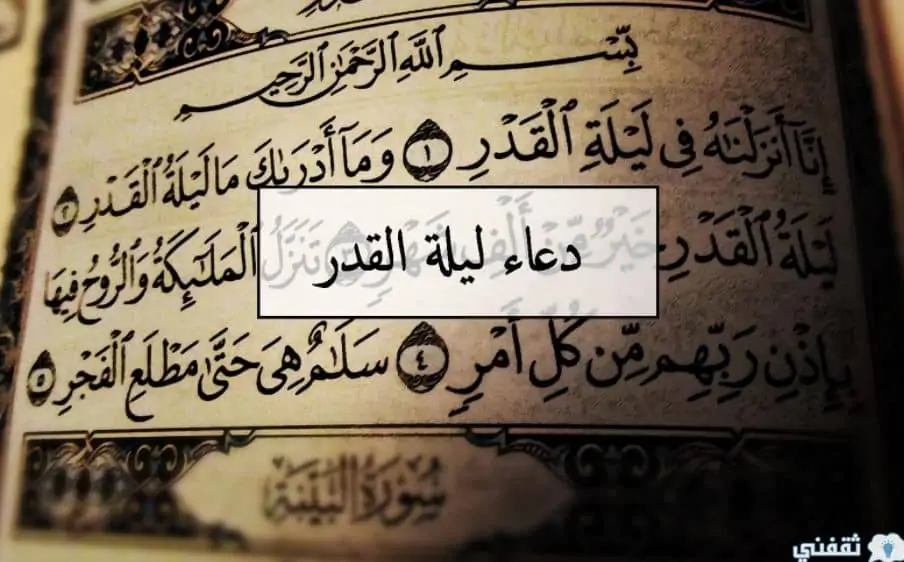 بِسْمِ ٱللَّهِ ٱلرَّحْمَٰنِ ٱلرَّحِيمِ
إِنَّآ أَنزَلْنَٰهُ فِى لَيْلَةِ ٱلْقَدْرِ ١ وَمَآ أَدْرَىٰكَ مَا لَيْلَةُ ٱلْقَدْرِ ٢
لَيْلَةُ ٱلْقَدْرِ خَيْرٌ مِّنْ أَلْفِ شَهْرٍ ٣ تَنَزَّلُ ٱلْمَلَٰٓئِكَةُ وَٱلرُّوحُ فِيهَا
دعاء ليلة القدر
بِإِذْنِ رَبِّهِم مِّن كُلِّ أَمْرٍ ٤ سَلَٰمٌ هِىَ حَتَّىٰ مَطْلَعِ ٱلْفَجْرِ ٥
سُورَةُ البَيِّنَةِ
ثقفني